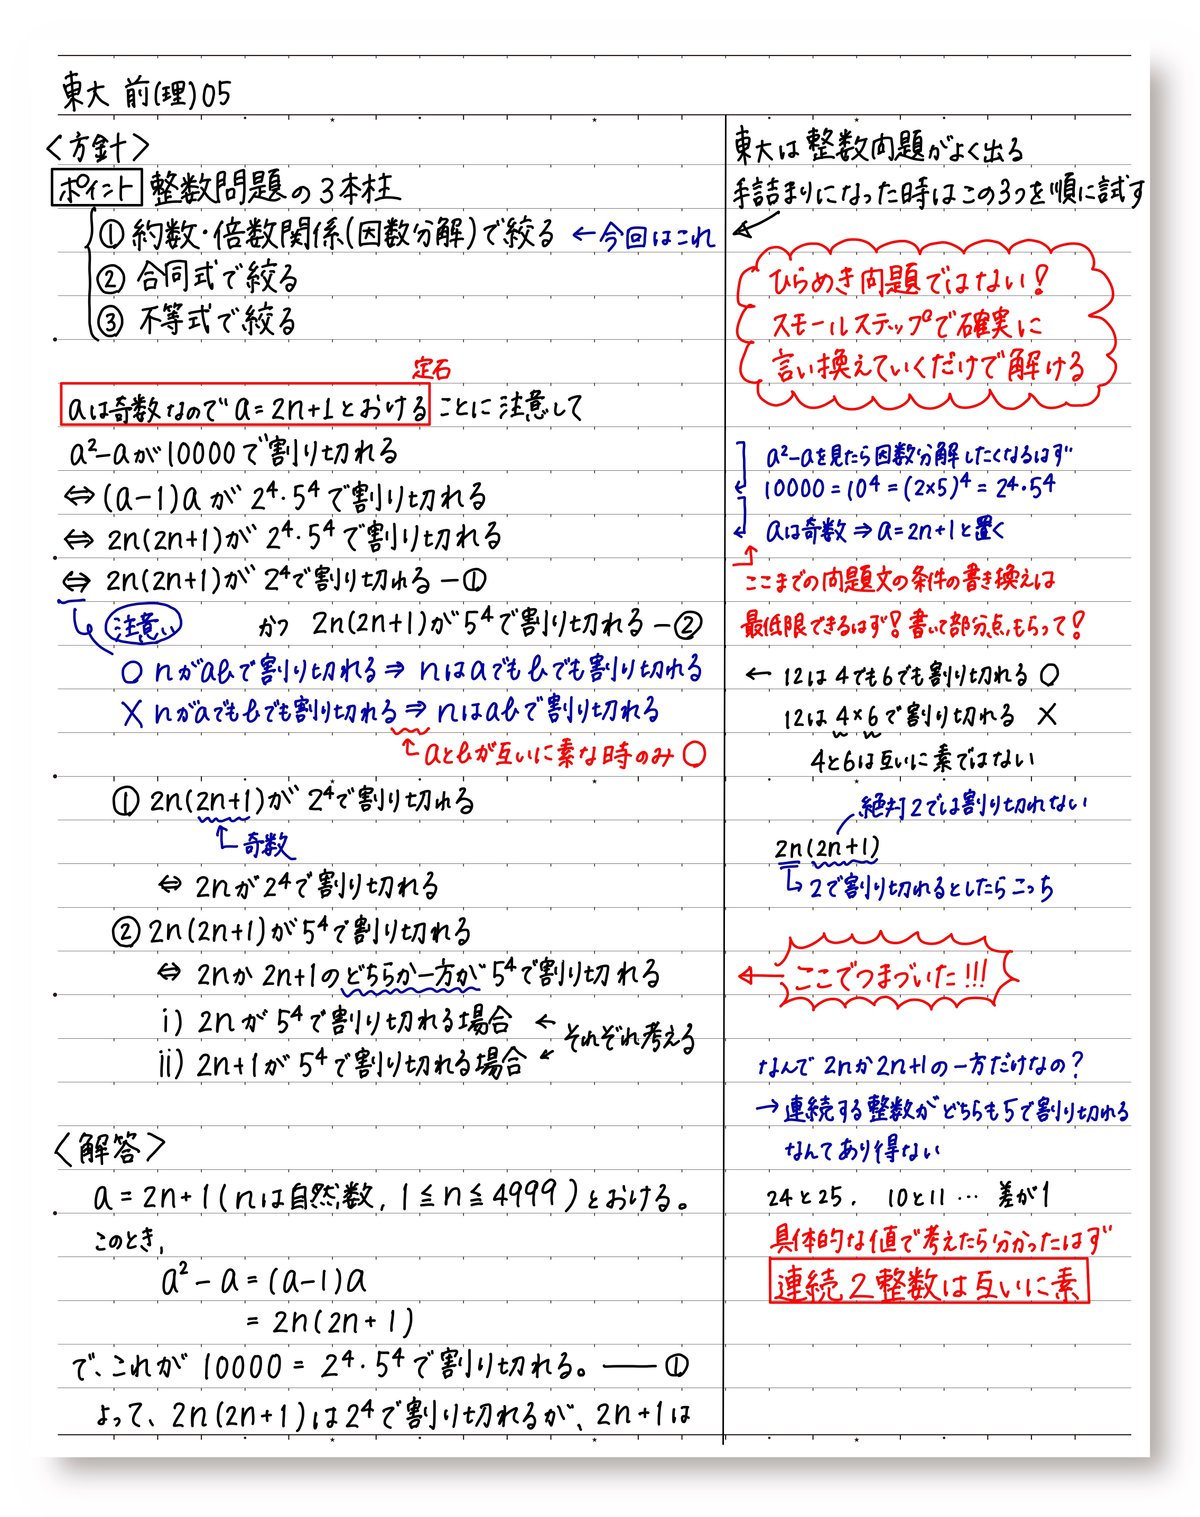 東大 前(理)05
〈方針〉
ポイント 整数問題の3本柱
① 約数・倍数関係(因数分解)で絞る ←今回はこれ
② 合同式で絞る
③ 不等式で絞る
定石
aは奇数なので a=2n+1とおける ことに注意して
a²-aが10000で割り切れる
⇔ (a-1)a が 2⁴・5⁴で割り切れる
⇔ 2n(2n+1)が 2⁴・5⁴で割り切れる
⇔ 2n(2n+1)が 2⁴で割り切れる ー①
注意 かつ 2n(2n+1)が5⁴で割り切れる ー②
○ nがabで割り切れる ⇒ nはaでもbでも割り切れる
× nがaでもbでも割り切れる ⇒ nはabで割り切れる
aとbが互いに素な時のみ○
① 2n(2n+1)が 2⁴で割り切れる
奇数
⇔ 2nが2⁴で割り切れる
② 2n(2n+1)が5⁴で割り切れる
⇔ 2nか 2n+1のどちらか一方が 5⁴で割り切れる
i) 2nが 5⁴で割り切れる場合 ←
それぞれ考える
ii) 2n+1が 5⁴で割り切れる場合 ←
〈解答〉
a = 2n+1 (nは自然数, 1≦n≦4999)とおける。
このとき,
a²-a = (a-1)a
= 2n(2n+1)
で、これが 10000 = 2⁴・5⁴で割り切れる。――①
よって、2n(2n+1)は2⁴で割り切れるが、2n+1は
東大は整数問題がよく出る
手詰まりになった時はこの3つを順に試す
ひらめき問題ではない!
スモールステップで確実に
言い換えていくだけで解ける
a²-aを見たら因数分解したくなるはず
10000=10⁴=(2×5)⁴=2⁴・5⁴
aは奇数 ⇒ a=2n+1と置く
ここまでの問題文の条件の書き換えは
最低限できるはず!書いて部分点もらって!
← 12は4でも6でも割り切れる ○
12は4×6で割り切れる ×
4と6は互いに素ではない
絶対2では割り切れない
2n(2n+1)
2で割り切れるとしたらこっち
ここでつまづいた!!!
なんで 2nか2n+1の一方だけなの?
→連続する整数がどちらも5で割り切れる
なんてあり得ない
24と25. 10と11 … 差が1
具体的な値で考えたら分かったはず
連続2整数は互いに素